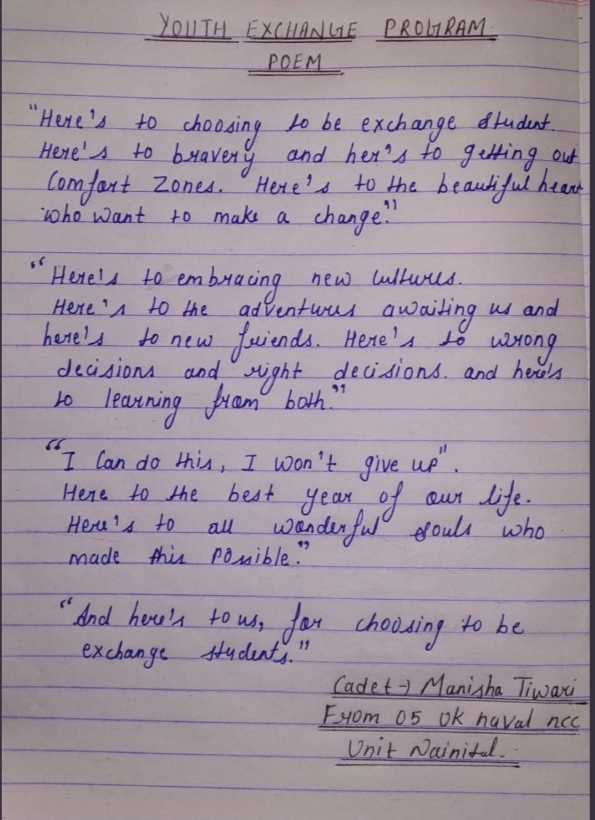 YOUTH EXCHANGE PROGRAM
POEM
"Here's to choosing to be exchange student.
Here's to bravery and her's to getting out
Comfort Zones. Here's to the beautiful heart
who want to make a change."
"Here's to embracing new cultures.
Here's to the adventures awaiting us and
here's to new friends. Here's to wrong
decisions and right decisions. and here's
to learning from both."
"I Can do this, I won't give up".
Here to the best year of our life.
Here's to all wonderful souls who
made this Possible."
"And here's to us, for choosing to be
exchange students."
Cadet→ Manisha Tiwari
From 05 UK naval ncc
Unit Nainital.